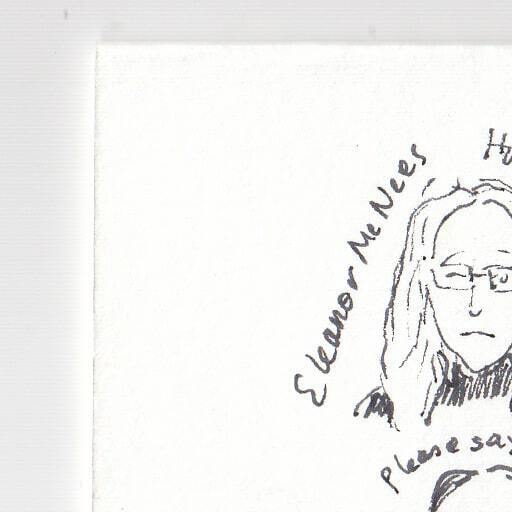 Eleanor McNees
Please say